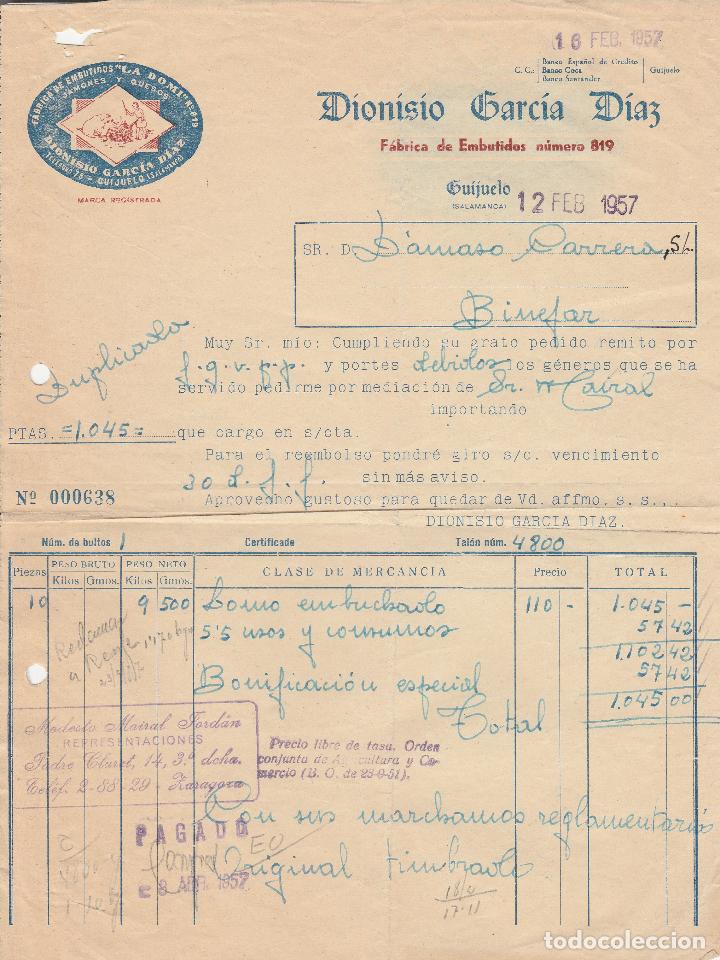 16 FEB. 1957
C. C.: Banco Español de Crédito
Banco Coca
Banco Santander
Guijuelo
FABRICA DE EMBUTIDOS "LA DOMI" Nº 819
JAMONES Y QUESOS
DIONISIO GARCÍA DÍAZ
TELEFONO 78 - GUIJUELO (SALAMANCA)
MARCA REGISTRADA
Dionisio García Díaz
Fábrica de Embutidos número 819
Guijuelo
(SALAMANCA)
12 FEB 1957
SR. D. Dámaso Carrera, S.L.
Binefar
Duplicado
Muy Sr. mío: Cumpliendo su grato pedido remito por
f.g.v.p.p. y portes debidos los géneros que se ha
servido pedirme por mediación de Sr. Mairal
importando
PTAS. =1.045= que cargo en s/cta.
Para el reembolso pondré giro s/c. vencimiento
30 d. f. f. sin más aviso.
Nº 000638
Aprovecho gustoso para quedar de Vd. affmo. s. s.,
DIONISIO GARCIA DIAZ.
Núm. de bultos 1 Certificado Talón núm. 4800
Piezas PESO BRUTO PESO NETO CLASE DE MERCANCIA Precio TOTAL
Kilos Gmos. Kilos Gmos.
10 9 500 Lomo embuchado 110 - 1.045 -
5'5 usos y consumos 57 42
1,102 42
Bonificación especial 57 42
Total 1.045 00
Modesto Mairal Jordán
REPRESENTACIONES
Padre Claret, 14, 3.º dcha.
Teléf. 2-88-29 - Zaragoza
Precio libre de tasa. Orden
conjunta de Agricultura y Co-
mercio (B. O. de 23-9-51).
Con sus marchamos reglamentarios
PAGADO
8 ABR. 1957
EO
Original timbrado
17-11
todocoleccion.net